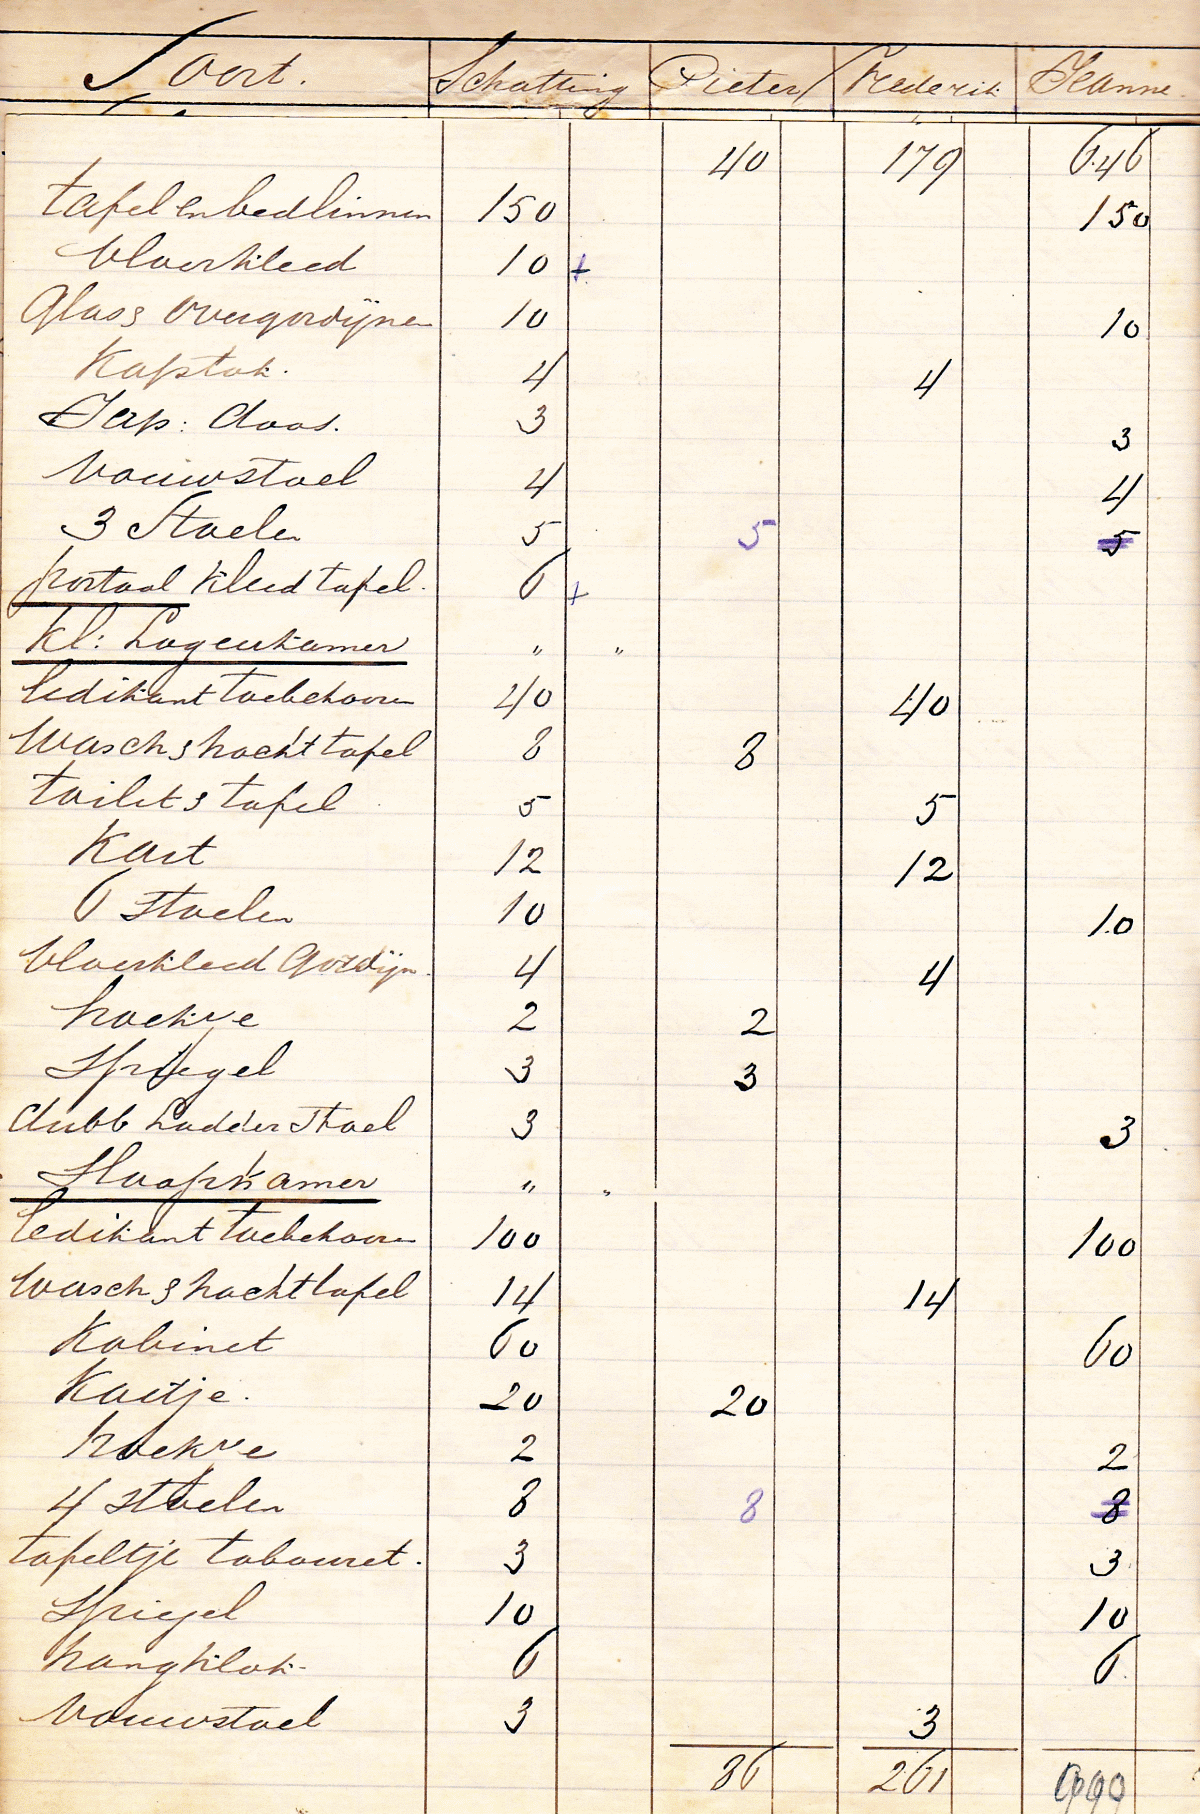 Soort. Schatting Pieter Frederik Jeanne
40 179 646
tafel en bedlinnen 150 150
Vloerkleed 10 +
Glas & overgordijnen 10 10
Kapstok. 4 4
Jap: doos. 3 3
Vouwstoel 4 4
3 Stoelen 5 5 5
portaal kleed tafel. 6 +
kl: Logeerkamer " "
ledikant toebehooren 40 40
Wasch & nachttafel 8 8
toilet & tafel 5 5
Kast 12 12
6 Stoelen 10 10
Vloerkleed Gordijn 4 4
2 2
Spiegel 3 3
dubb Ladder Stoel 3 3
Slaapkamer " "
ledikant toebehooren 100 100
Wasch & nachttafel 14 14
Kabinet 60 60
Kastje. 20 20
2 2
4 stoelen 8 8 8
tafeltje tabouret. 3 3
Spiegel 10 10
hangklok. 6 6
Vouwstoel 3 3
86 261